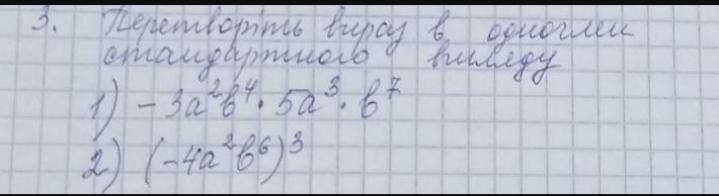 3. Перетворіть вираз в одночлен
стандартного вигляду
1) -3a²b⁴ · 5a³ · b⁷
2) (-4a²b⁶)³